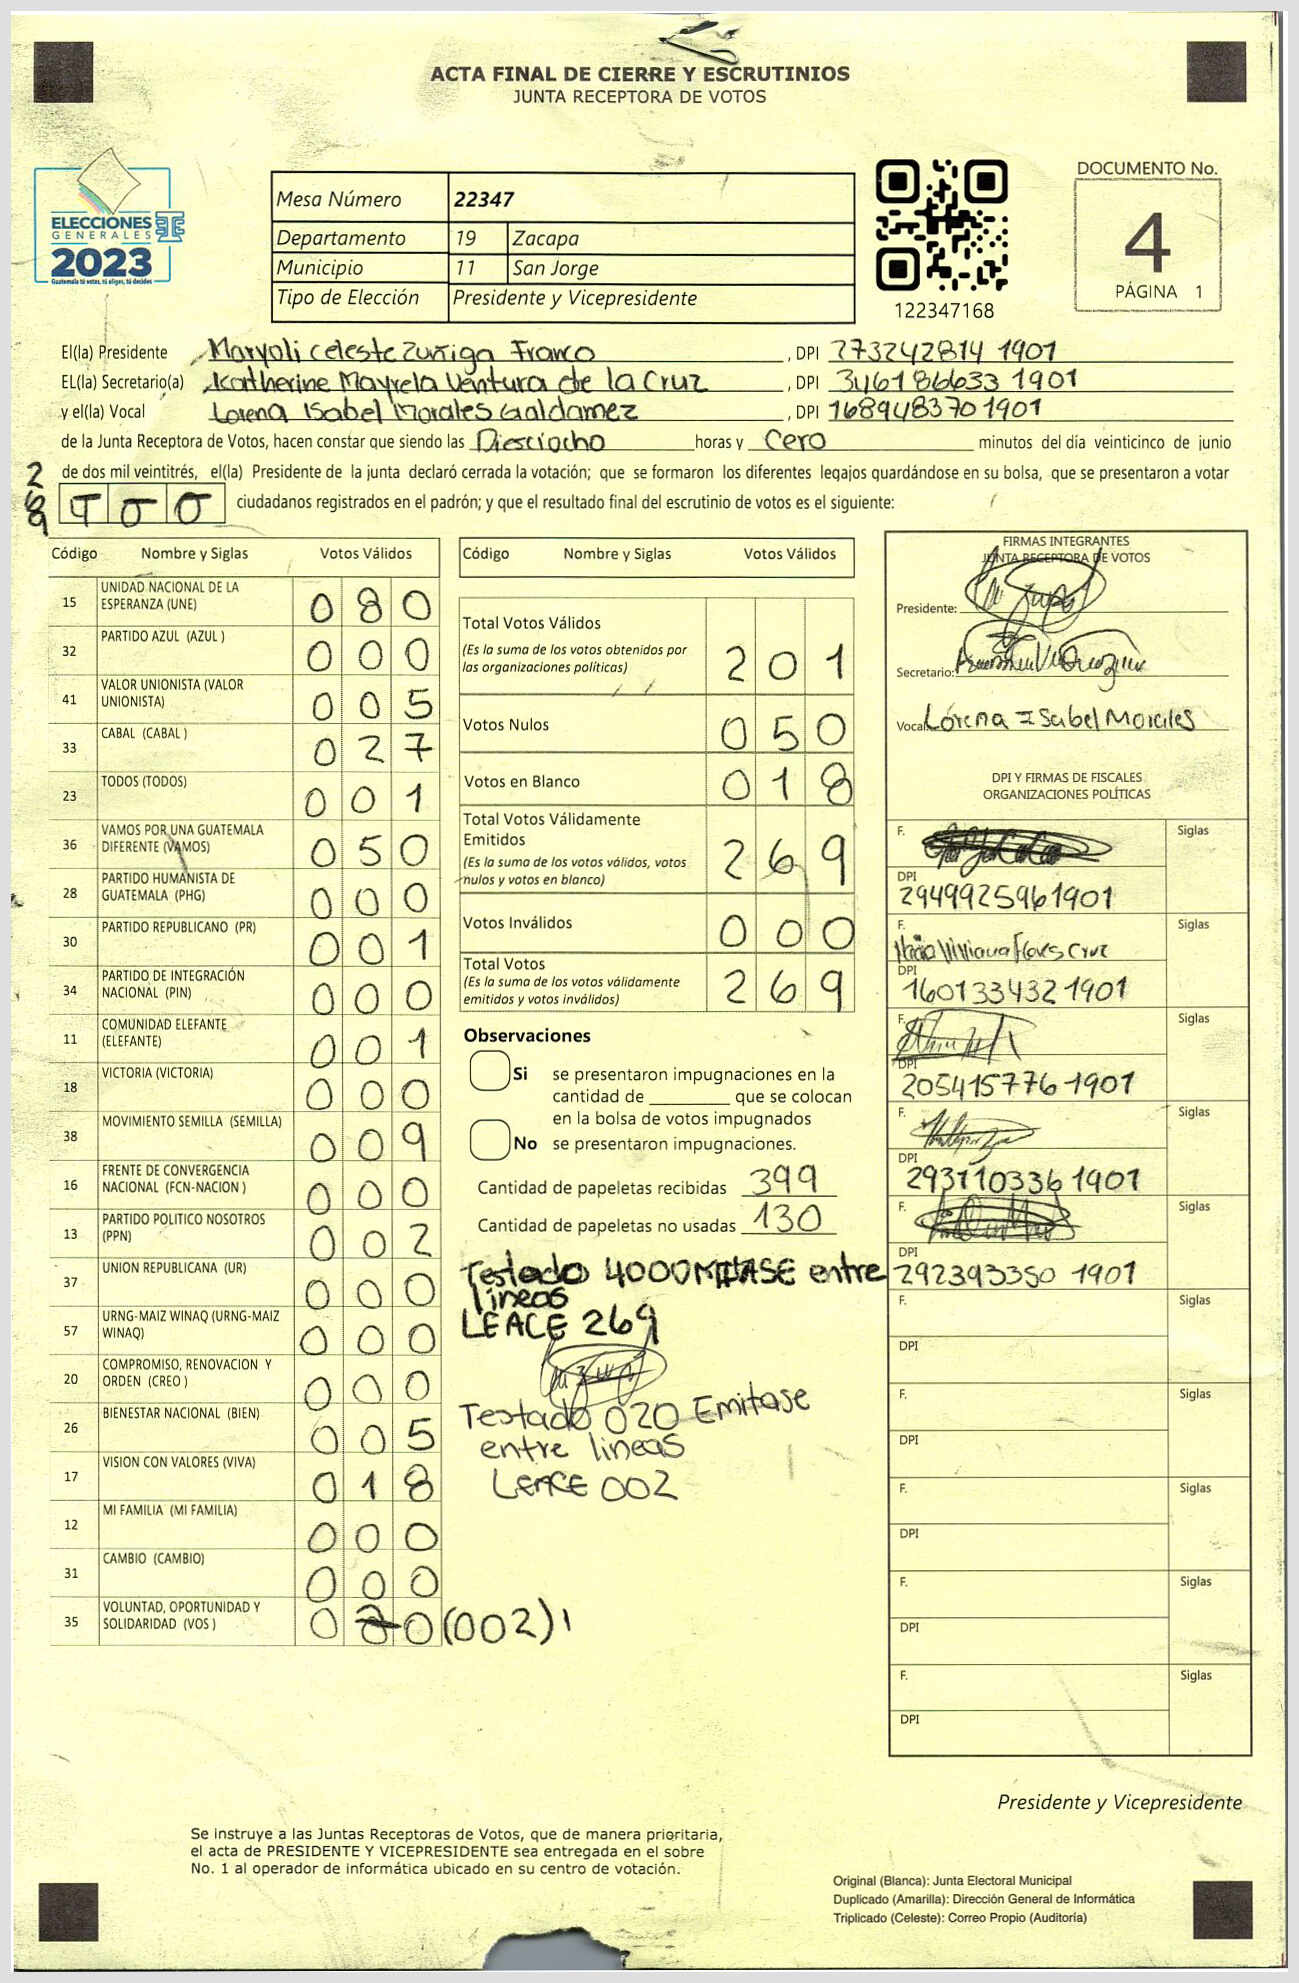 ACTA FINAL DE CIERRE Y ESCRUTINIOS
JUNTA RECEPTORA DE VOTOS
ELECCIONES
GENERALES
2023
Guatemala tú votas, tú eliges, tú decides
Mesa Número 22347
Departamento 19 Zacapa
Municipio 11 San Jorge
Tipo de Elección Presidente y Vicepresidente
122347168
DOCUMENTO No.
4
PÁGINA 1
El(la) Presidente Maryoli Celeste Zuñiga Franco, DPI 273242814 1901
EL(la) Secretario(a) Katherine Mayrela Ventura de la Cruz, DPI 346186633 1901
y el(la) Vocal Lorena Isabel Morales Galdamez, DPI 168948370 1901
de la Junta Receptora de Votos, hacen constar que siendo las Diesciocho horas y Cero minutos del día veinticinco de junio
de dos mil veintitrés, el(la) Presidente de la junta declaró cerrada la votación; que se formaron los diferentes legajos guardándose en su bolsa, que se presentaron a votar
269
ciudadanos registrados en el padrón; y que el resultado final del escrutinio de votos es el siguiente:
Código Nombre y Siglas Votos Válidos
15 UNIDAD NACIONAL DE LA ESPERANZA (UNE) 080
32 PARTIDO AZUL (AZUL ) 000
41 VALOR UNIONISTA (VALOR UNIONISTA) 005
33 CABAL (CABAL ) 027
23 TODOS (TODOS) 001
36 VAMOS POR UNA GUATEMALA DIFERENTE (VAMOS) 050
28 PARTIDO HUMANISTA DE GUATEMALA (PHG) 000
30 PARTIDO REPUBLICANO (PR) 001
34 PARTIDO DE INTEGRACIÓN NACIONAL (PIN) 000
11 COMUNIDAD ELEFANTE (ELEFANTE) 001
18 VICTORIA (VICTORIA) 000
38 MOVIMIENTO SEMILLA (SEMILLA) 009
16 FRENTE DE CONVERGENCIA NACIONAL (FCN-NACION ) 000
13 PARTIDO POLITICO NOSOTROS (PPN) 002
37 UNION REPUBLICANA (UR) 000
57 URNG-MAIZ WINAQ (URNG-MAIZ WINAQ) 000
20 COMPROMISO, RENOVACION Y ORDEN (CREO ) 000
26 BIENESTAR NACIONAL (BIEN) 005
17 VISION CON VALORES (VIVA) 018
12 MI FAMILIA (MI FAMILIA) 000
31 CAMBIO (CAMBIO) 000
35 VOLUNTAD, OPORTUNIDAD Y SOLIDARIDAD (VOS ) 020 (002)
Código Nombre y Siglas Votos Válidos
Total Votos Válidos 201
(Es la suma de los votos obtenidos por
las organizaciones políticas)
Votos Nulos 050
Votos en Blanco 018
Total Votos Válidamente
Emitidos 269
(Es la suma de los votos válidos, votos
nulos y votos en blanco)
Votos Inválidos 000
Total Votos 269
(Es la suma de los votos válidamente
emitidos y votos inválidos)
Observaciones
Si se presentaron impugnaciones en la
cantidad de ________ que se colocan
en la bolsa de votos impugnados
No se presentaron impugnaciones.
Cantidad de papeletas recibidas 399
Cantidad de papeletas no usadas 130
Testado 4000 entre
lineas
LEACE 269
Testado 020 Emitase
entre lineas
LEACE 002
FIRMAS INTEGRANTES
JUNTA RECEPTORA DE VOTOS
Presidente:
Secretario:
Vocal Lorena Isabel Morales
DPI Y FIRMAS DE FISCALES
ORGANIZACIONES POLÍTICAS
F. Siglas
DPI
294992596 1901
F. Flores Cruz Siglas
DPI
160133432 1901
F. Siglas
DPI
205415776 1901
F. Siglas
DPI
293110336 1901
F. Siglas
DPI
292393350 1901
F. Siglas
DPI
F. Siglas
DPI
F. Siglas
DPI
F. Siglas
DPI
F. Siglas
DPI
Presidente y Vicepresidente
Se instruye a las Juntas Receptoras de Votos, que de manera prioritaria,
el acta de PRESIDENTE Y VICEPRESIDENTE sea entregada en el sobre
No. 1 al operador de informática ubicado en su centro de votación.
Original (Blanca): Junta Electoral Municipal
Duplicado (Amarilla): Dirección General de Informática
Triplicado (Celeste): Correo Propio (Auditoría)